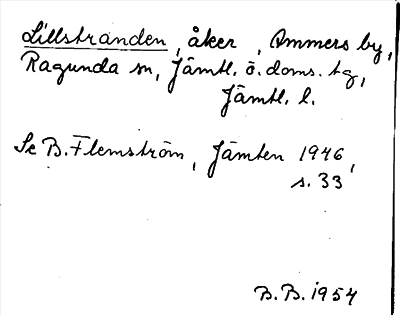 Lillstranden, åker, Ammers by,
Ragunda sn, Jämtl. ö. doms. tg,
Jämtl. l.
Se B. Flemström, Jämten 1946,
s. 33
B.B. 1954